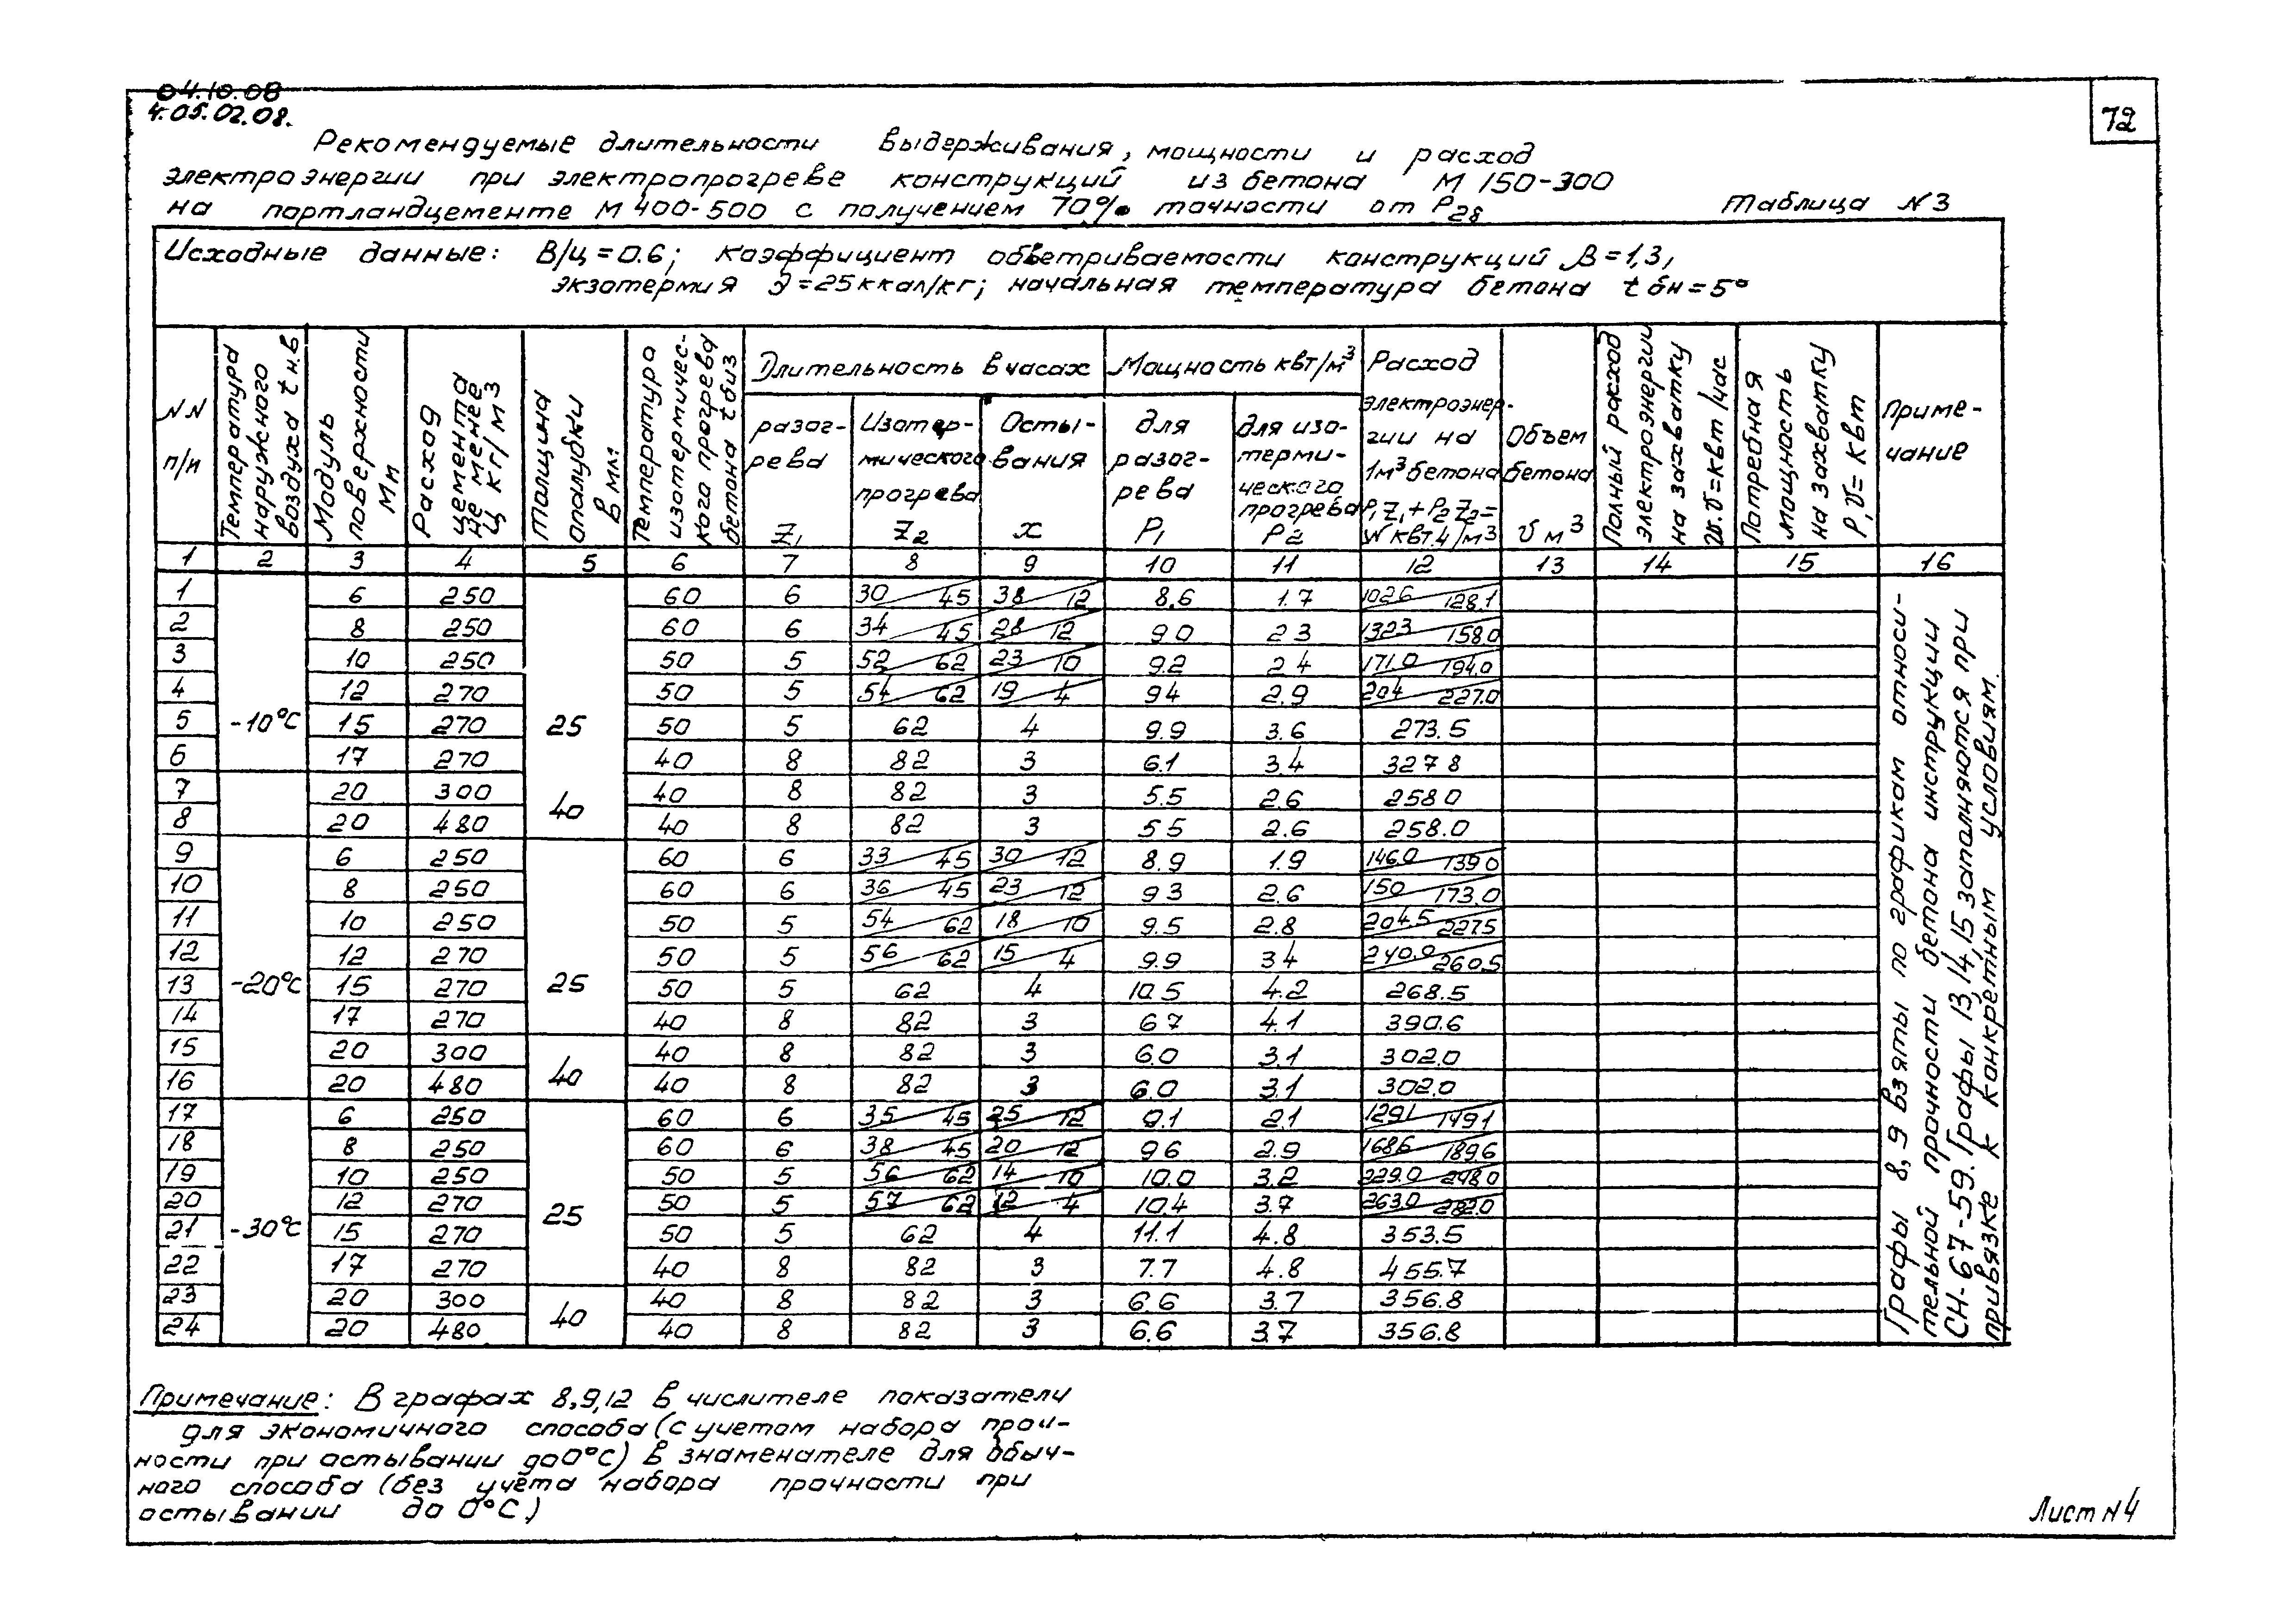 04.10.08
4.05.02.08.
72
Рекомендуемые длительности выдерживания, мощности и расход
электроэнергии при электропрогреве конструкций из бетона М 150-300
на портландцементе М 400-500 с получением 70% точности от Р28
Таблица N3
Исходные данные: В/ц = 0.6; коэффициент обветриваемости конструкций β = 1,3,
экзотермия Э = 25 ккал/кг; начальная температура бетона t бн = 5°
NN п/п
Температура наружного воздуха t н.в
Модуль поверхности Мп
Расход цемента не менее Ц кг/м3
Толщина опалубки в мм.
Температура изотермичес- кого прогрева бетона t биз
Длительность в часах
разог- рева Z1
Изотер- мического прогрева Z2
Осты- вания x
Мощность квт/м3
для разог- рева P1
для изо- терми- ческого прогрева P2
Расход электроэнер- гии на 1м3 бетона P1 Z1 + P2 Z2 = W квт.ч/м3
Объем бетона V м3
Полный расход электроэнергии на захватку W.V = квт/час
Потребная мощность на захватку P1 V = квт
Приме- чание
1 2 3 4 5 6 7 8 9 10 11 12 13 14 15 16
1 6 250 60 6 30/45 38/12 8,6 1.7 102.6/128.1
2 8 250 60 6 34/45 28/12 9 0 2 3 1323/158.0
3 10 250 50 5 52/62 23/10 9.2 2 4 171.0/194.0
4 12 270 50 5 54/62 19/4 9 4 2.9 204/227.0
5 -10°С 15 270 25 50 5 62 4 9.9 3.6 273.5
6 17 270 40 8 82 3 6.1 3.4 327 8
7 20 300 40 40 8 82 3 5.5 2.6 258 0
8 20 480 40 8 82 3 5 5 2.6 258.0
9 6 250 60 6 33/45 30/12 8.9 1.9 146.0/139 0
10 8 250 60 6 36/45 23/12 9 3 2.6 150/173.0
11 10 250 50 5 54/62 18/10 9.5 2.8 204.5/227.5
12 12 270 50 5 56/62 15/4 9.9 3 4 240.0/260.5
13 -20°С 15 270 25 50 5 62 4 10 5 4.2 268.5
14 17 270 40 8 82 3 6 7 4.1 390.6
15 20 300 40 40 8 82 3 6.0 3.1 302.0
16 20 480 40 8 82 3 6.0 3.1 302.0
17 6 250 60 6 35/45 25/12 9.1 2.1 129.1/149.1
18 8 250 60 6 38/45 20/12 9 6 2.9 168.6/189.6
19 10 250 50 5 56/62 14/10 10.0 3.2 229.0/248.0
20 12 270 50 5 57/62 12/4 10.4 3.7 263.0/282.0
21 -30°С 15 270 25 50 5 62 4 11.1 4.8 353.5
22 17 270 40 8 82 3 7.7 4.8 455.7
23 20 300 40 40 8 82 3 6.6 3.7 356.8
24 20 480 40 8 82 3 6.6 3.7 356.8
Графы 8, 9 взяты по графикам относи-
тельной прочности бетона инструкции
СН-67-59. Графы 13,14,15 заполняются при
привязке к конкретным условиям.
Примечание: В графах 8,9,12 в числителе показатели
для экономичного способа (с учетом набора проч-
ности при остывании до 0°С) в знаменателе для обыч-
ного способа (без учёта набора прочности при
остывании до 0°С.)
Лист N4